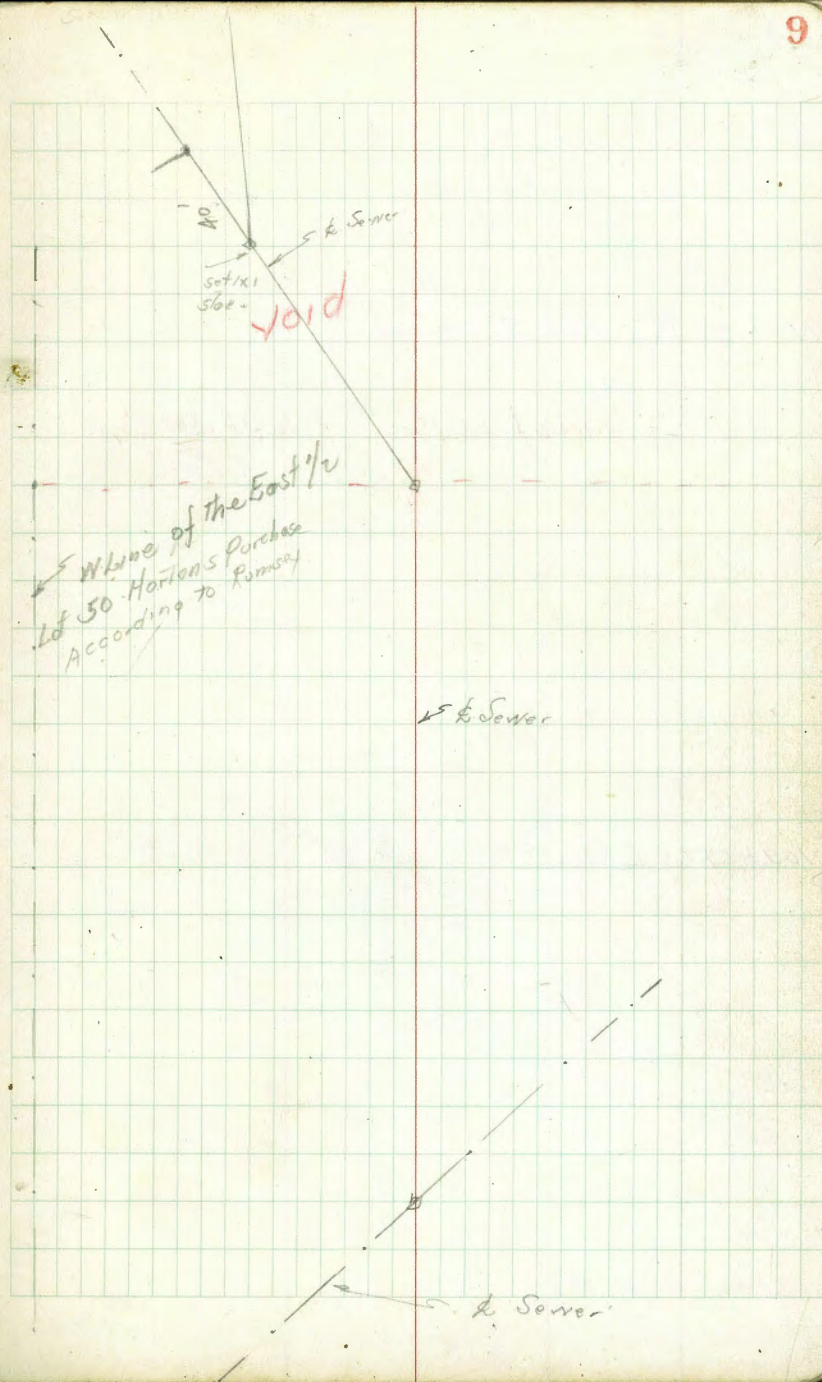 9
40'
℄ Sewer
set 1x1
stke.
Void
W Line of the East 1/2
Lot 50 Hortons Purchase
According to Rumsey
℄ Sewer
℄ Sewer